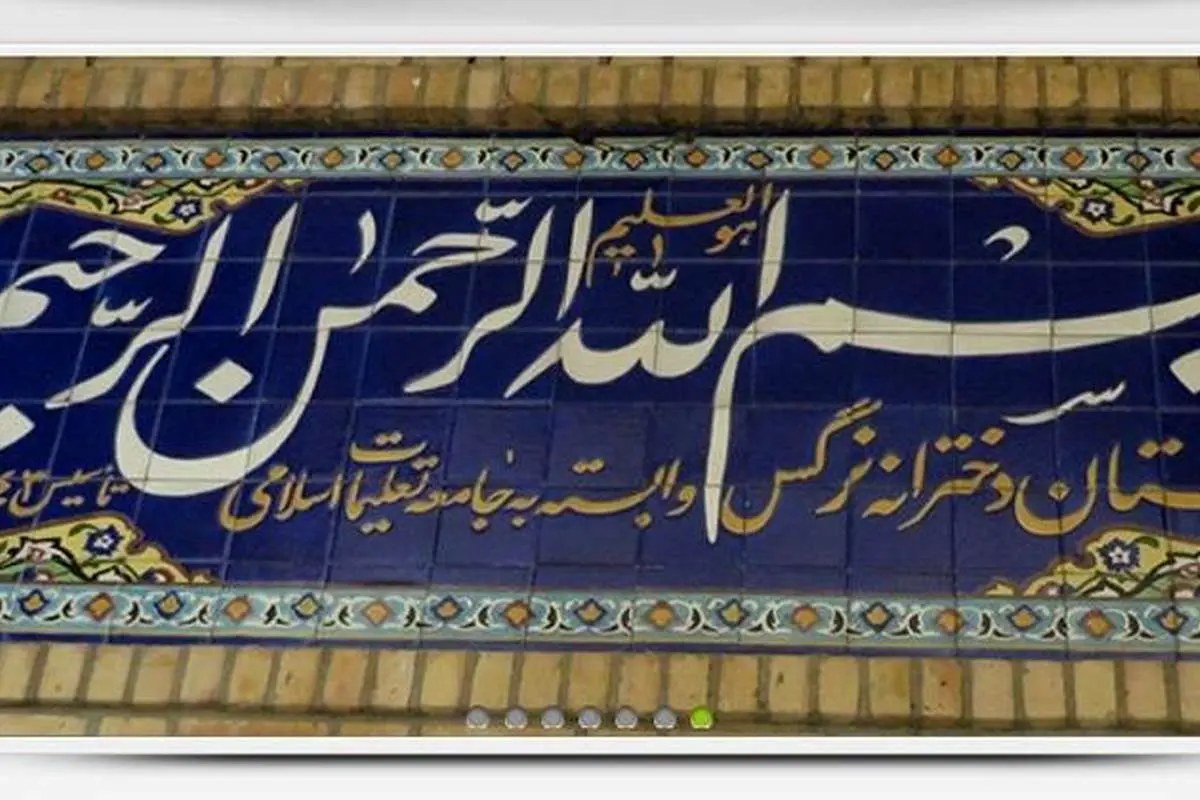 هو العلیم
بسم الله الرحمن الرحیم
ستان دخترانه نرگس وابسته به جامعه تعلیمات اسلامی تأسیس